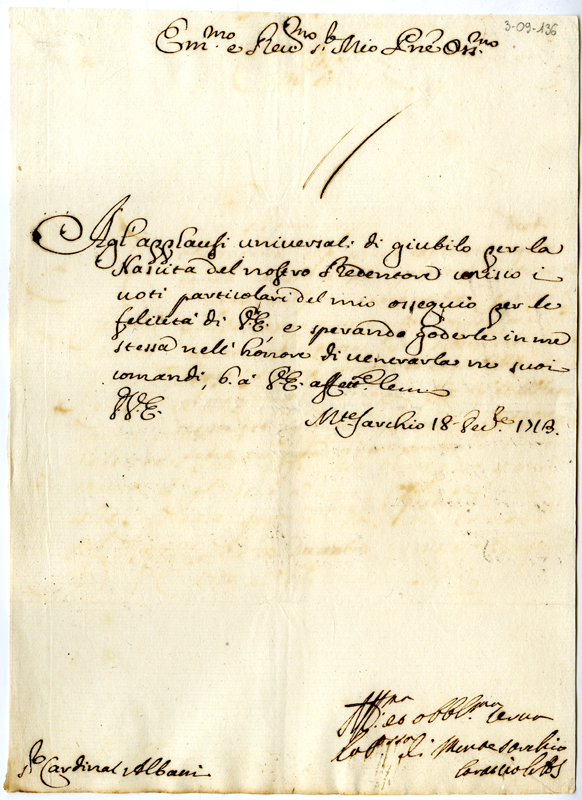 3-09-136
Em.mo e Reu.mo S.r Mio Pne Oss.mo
Agl'applausi uniuersali di giubilo per la
Nascita del nostro Redentore unisco i
uoti particolari del mio ossequio per le
felicità di V.E. e sperando goderle in me
stessa nell'honore di uenerarla ne suoi
comandi, b. à V.E. affett.
D.V.E.
M.te Sarchio 18 Xbre 1713.
obbl.ma serua
di Montesarchio
S.r Cardinal Albani